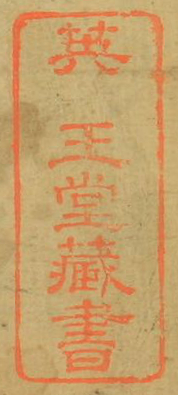 英王堂藏書